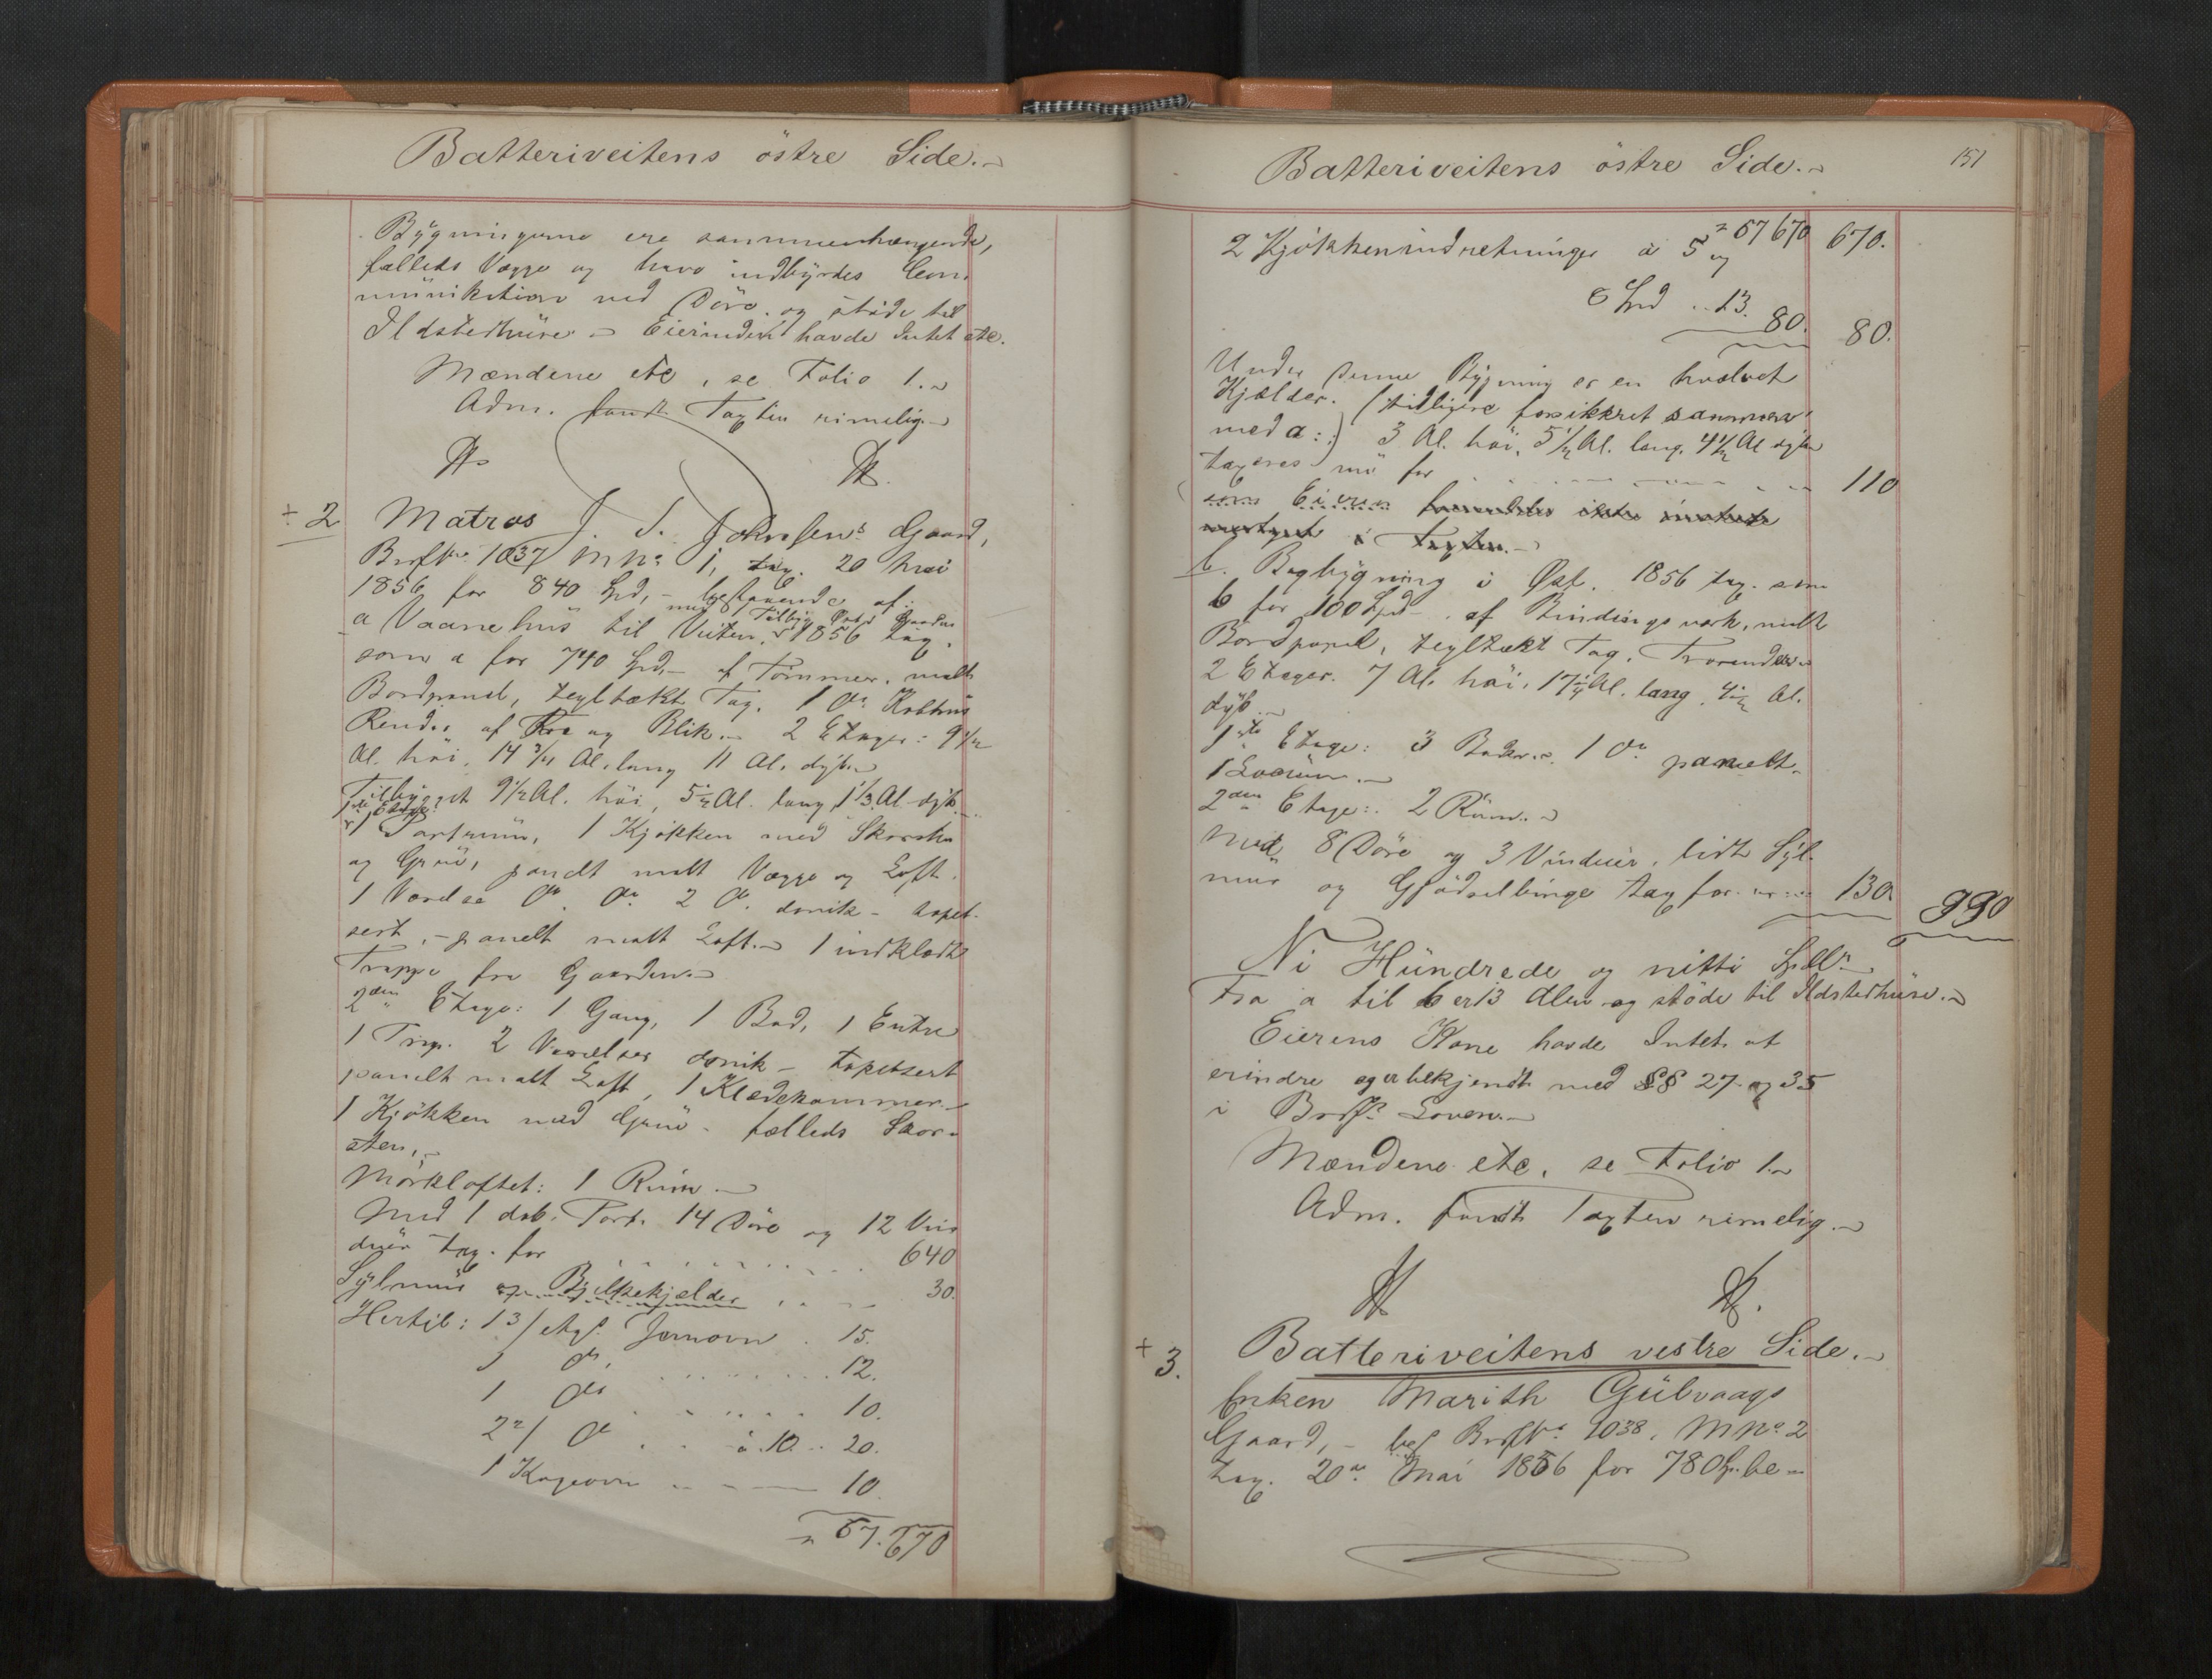 Batteriveitens östre Side.
Bygningerne ere sammenhængende,
fælleds Vægge og have indbyrdes Com
munikation ved Döre og stöde til
Ildstedhuse – Eierinden havde Intet etc.
Mændene etc, se Folio 1.
Adm. fandt Taxten rimelig.
÷ 2 Matros J. S. Johnsens Gaard,
Brsf No 1037 M No 1, tax. 20 Mai
1856 for 840 Spd, – bestaaende af:
med Tilbyg
a Vaanehus til Veiten, 1856 tax.
som a for 740 Spd, – af Tömmer, malt
Bordpanel, tegltækt Tag. 1 Do
Render af Træ og Blik. – 2 Etager: 9 1/2
Al. höi, 14 3/4 Al. lang 11 Al. dyb.
Tilbygget 9 1/2 Al. höi, 5 1/2 Al. lang, 1 1/3 Al. dyb.
1ste Etage:
1 Portrum, 1 Kjökken med Skorsten
og Grue, panelt malt Vægge og Loft.
1 Værelse Do. Do. 2 Do. donik – tapet-
sert, – panelt malt Loft. – 1 indklædt
Trappe fra Gaarden. –
2den Etage: 1 Gang, 1 Bod, 1 Entre
1 Trap. 2 Værelser donik – tapetsert
panelt malt Loft, 1 Klædekammer. –
1 Kjökken med Grue – fælleds Skor-
sten, –
Mörkloftet: 1 Rum. –
Med 1 dob. Port. 14 Döre og 12 Vin
duer tax. for . . . . . . . . 640
Sylmur og Bjelkekjelder . . . . 30.
Hertil: 1 3/etgs. Jernovn . 15.
1 do, . . . . . . . 12.
1 do . . . . . . 10.
2 2/ do . . . à 10 .. 20.
1 Kageovn . . – 10.
67. 670
Batteriveitens östre Side. –
151
67 670 670.
2 Kjökkenindretninger à 5 og
8 Spd .. 13. 80. 80.
Under denne Bygning er en hvælvet
Kjælder. (tidligere forsikkret sammen
med a:) 3 Al. höi, 5 1/2 Al. lang, 4 1/2 Al dyb
taxeres nu for . . . . . . . . 110
som Eieren forlangte ikke
i Taxten. –
b. Bagbygning i Öst. 1856 tax. som
b for 100 Spd – af Bindingsverk, malt
Bordpanel, teglhækt Tag. Trærender.
2 Etager. 7 Al. höi, 17 1/4 Al. lang, 4 1/2 Al.
dyb. –
1ste Etage: 3 Boder. – 1 Do panelt.
1 Locum. –
2den Etage: 2 Rum. –
Med 8 Döre og 3 Vinduer, lidt Syl-
mur og Gjödselbinge tax for 130. 990
Ni Hundrede og nitti Spdlr. –
Fra a til b er 13 Alen og stöde til Ildstedhuse. –
Eierens Kone havde Intet at
erindre og er bekjendt med §§ 27 og 35
i Brsf. Loven. –
Mændene etc. se Folio 1. –
Adm. fandt Taxten rimelig. –
+ 3. Batteriveitens vestre Side. –
Enken Marith Gulvaags
Gaard, – Brsf No 1038, M No 2
tax. 20de Mai 1856 for 780 Sp. be –